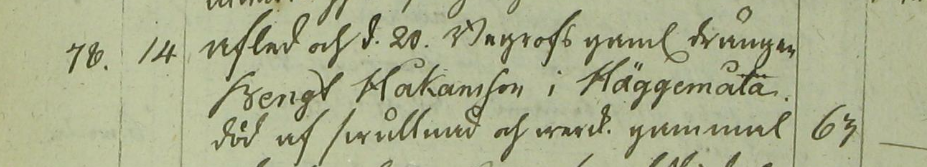 78. 14 afled och d. 20. begrofs gaml drängen
Bengt Håkanson i Häggemåla.
död af swullnad och werck. gammal 63